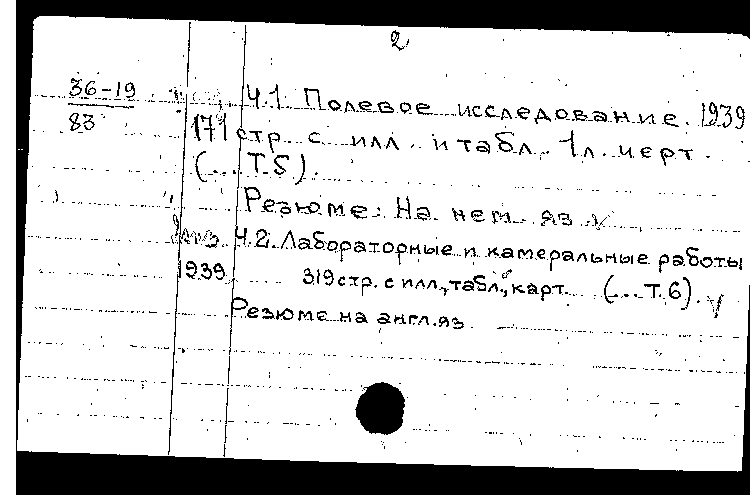 2
36-19 Ч.1. Полевое исследование. 1939
83 171 стр. с илл. и табл. 1 л. черт.
(...Т.5).
Резюме: На нем. яз.
Ч.2. Лабораторные и камеральные работы
1939 319 стр. с илл., табл., карт. (...Т.6).
Резюме на англ. яз.